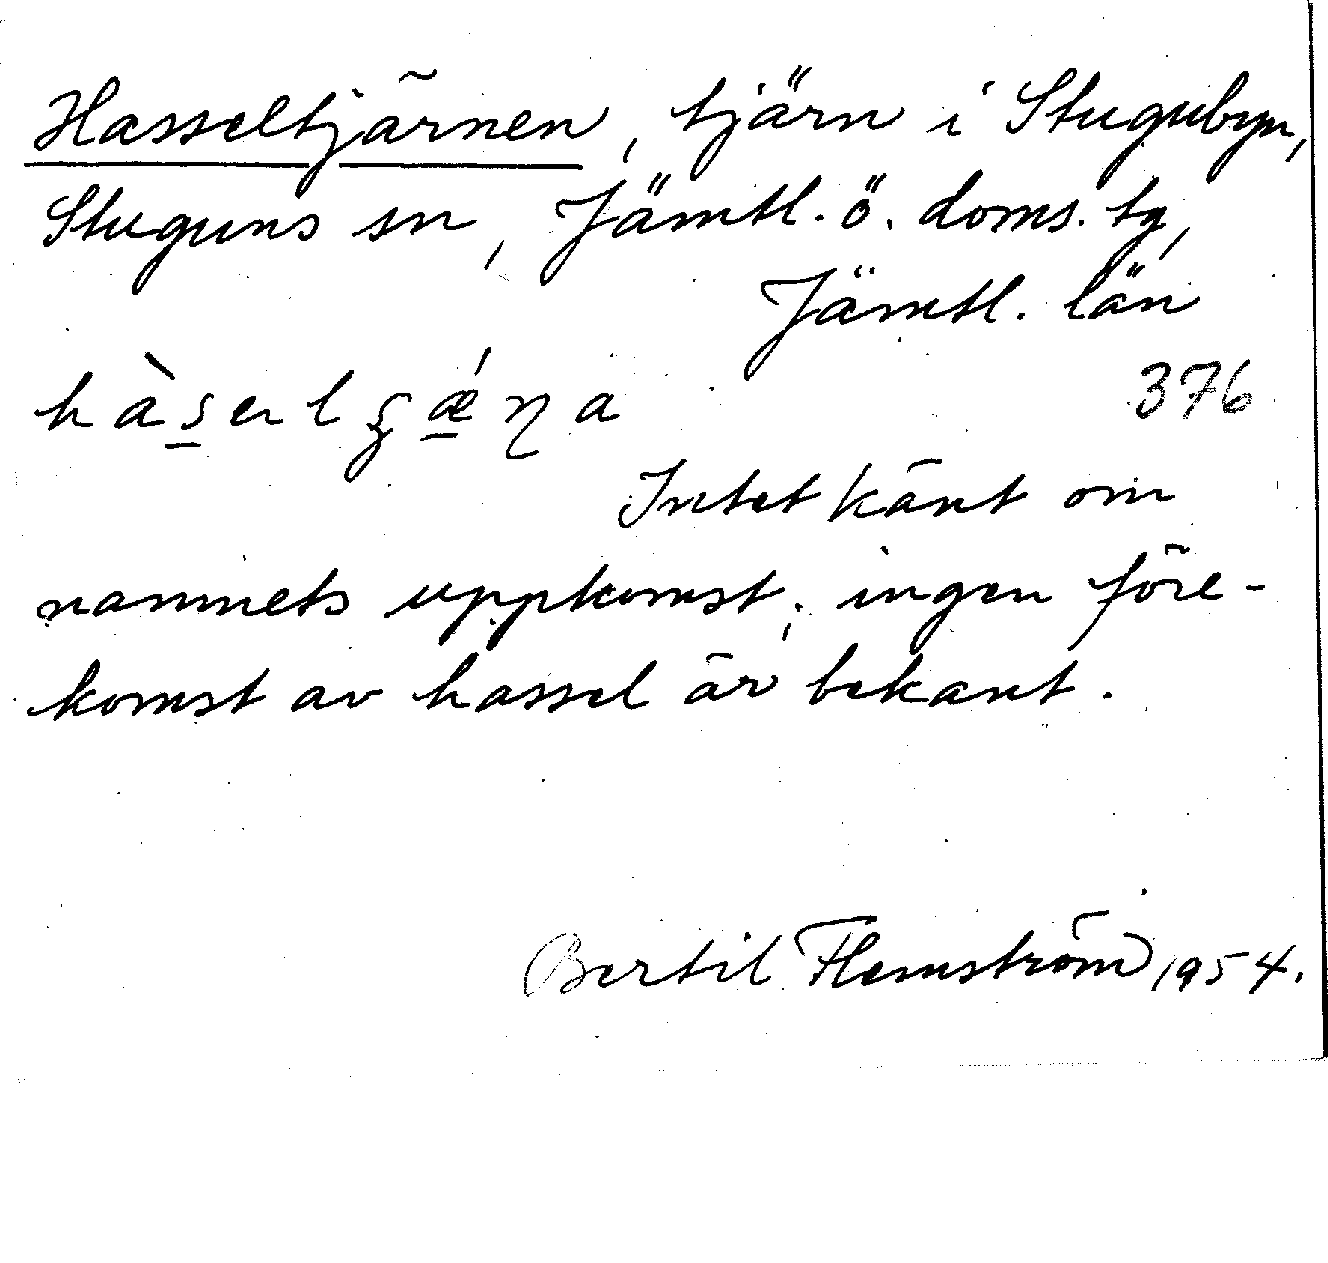 Hasseltjärnen, tjärn i Stugubyn,
Stuguns sn, Jämtl. ö. doms. tg,
Jämtl. län
376
Intet känt om
namnets uppkomst; ingen före-
komst av hassel är bekant.
Bertil Flemström 1954.